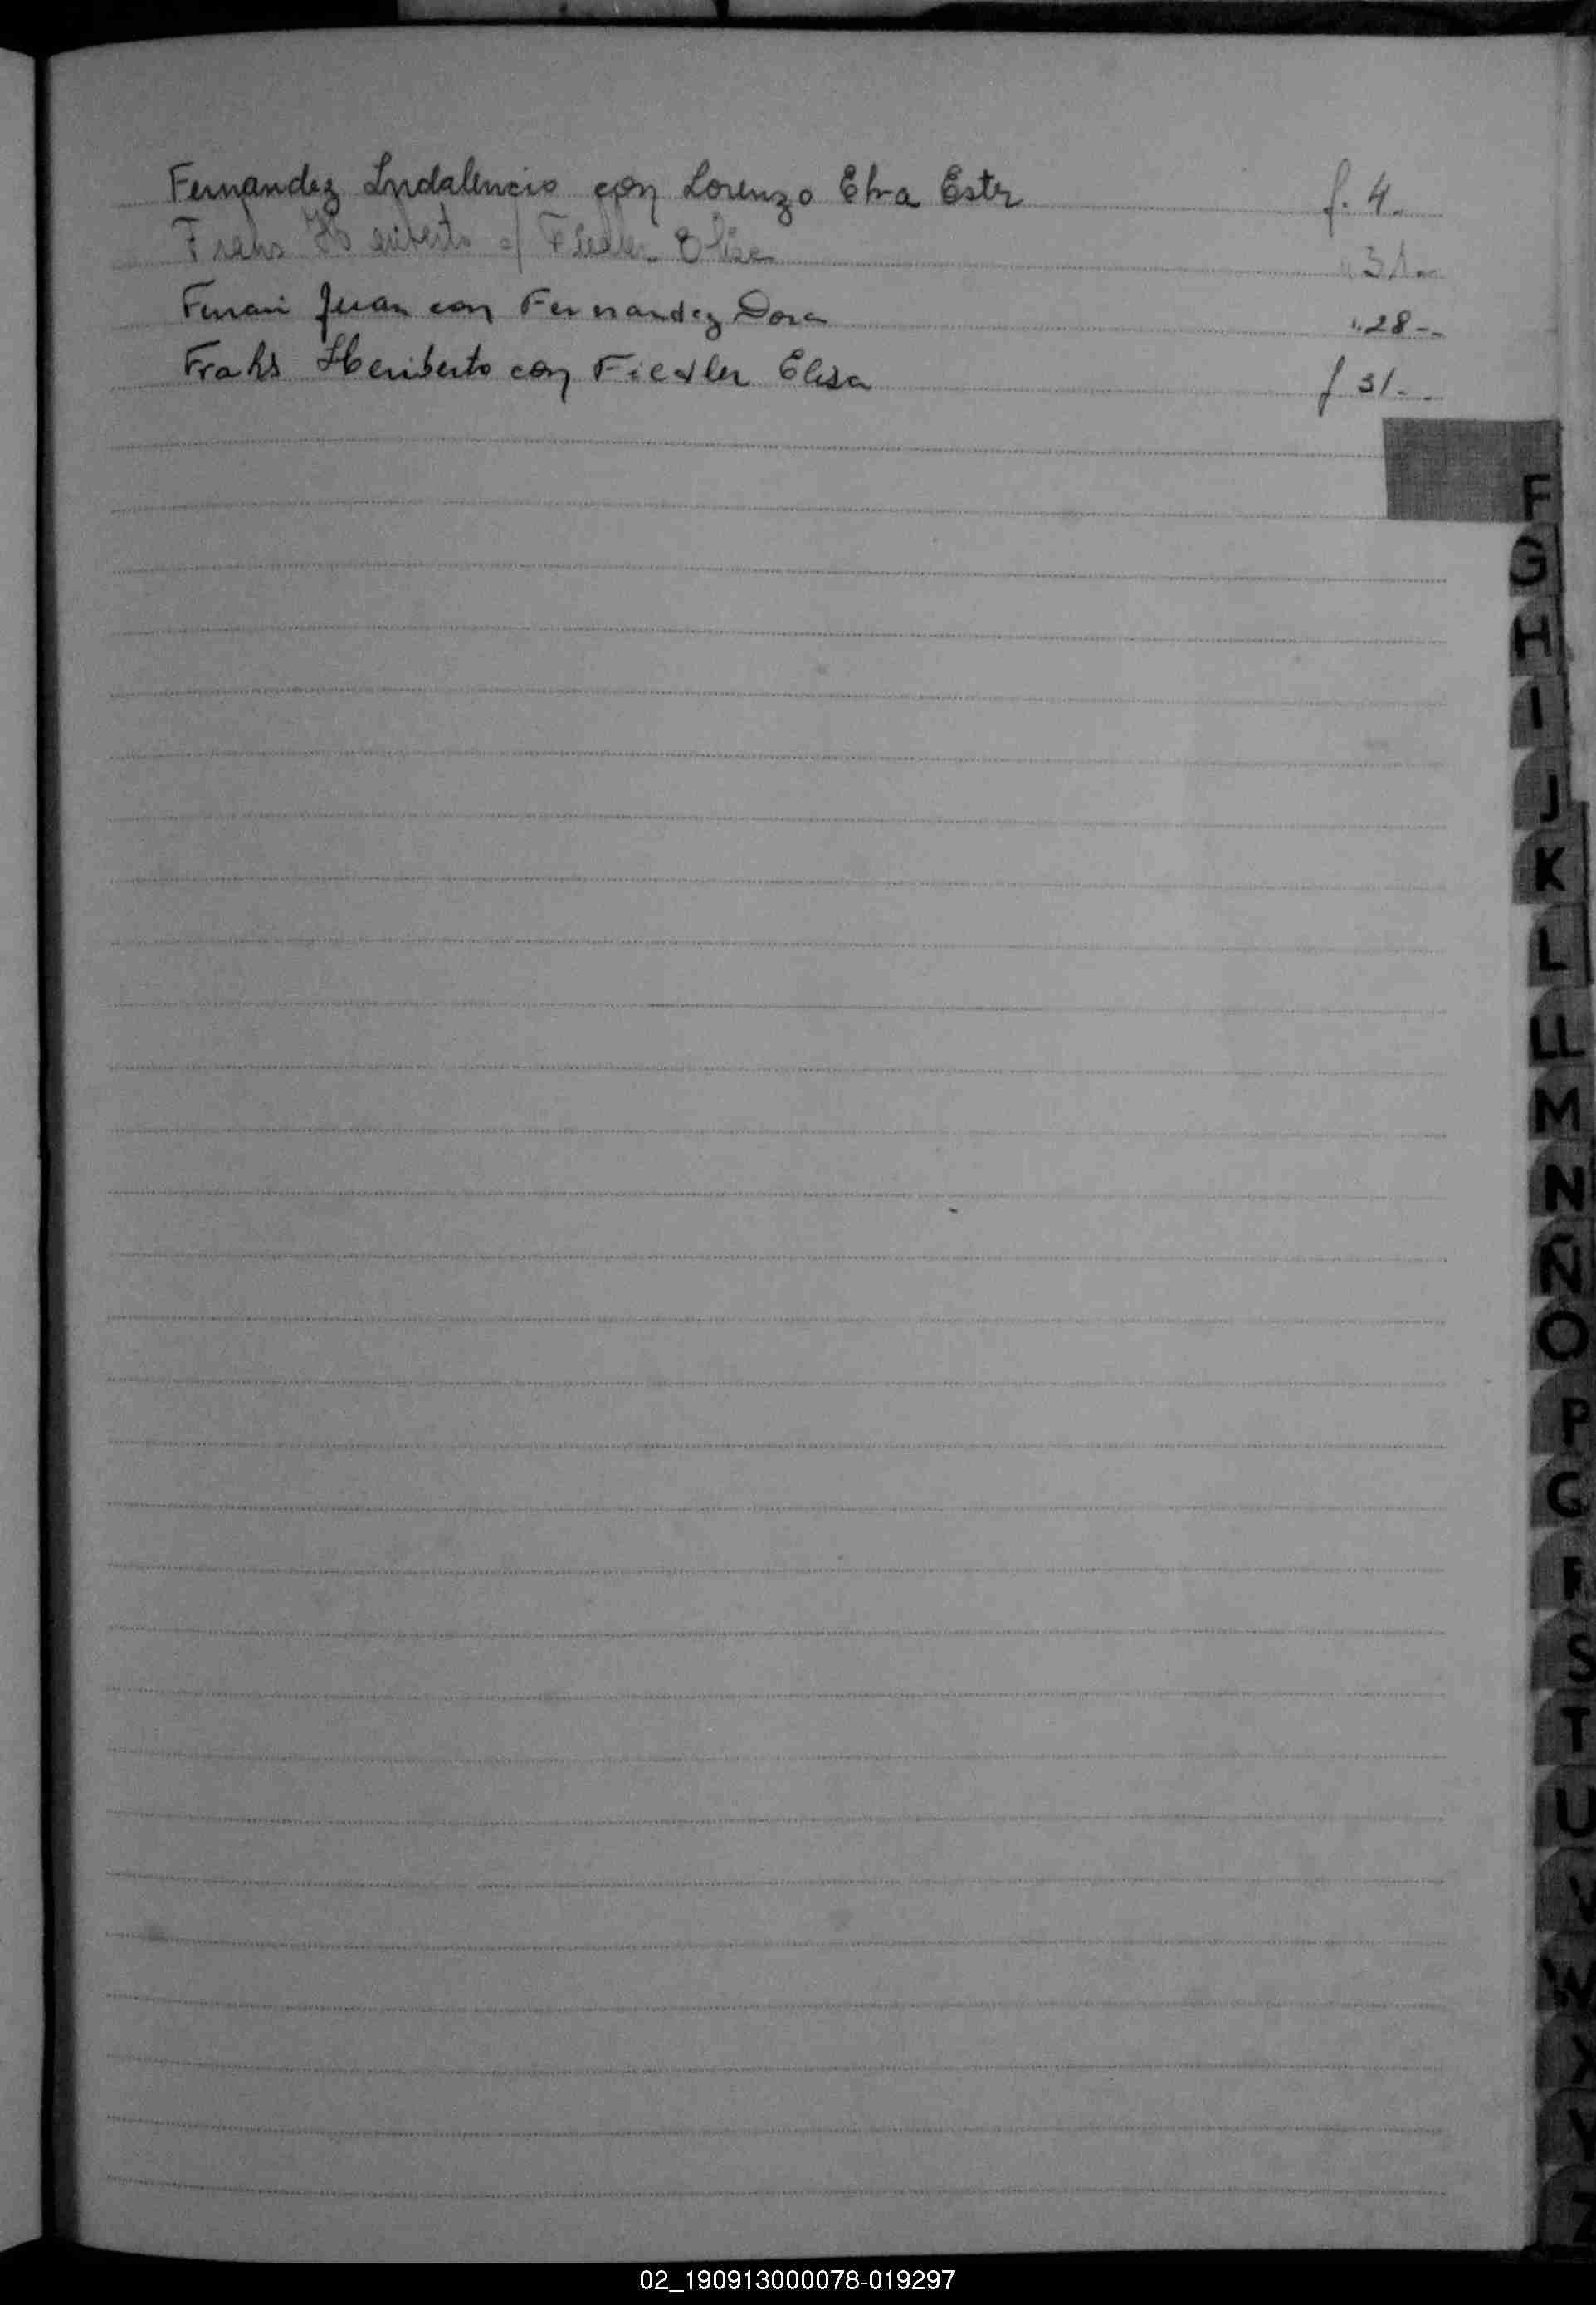 Fernandez Indalencio con Lorenzo Elva Ester f. 4.
Frahs Heriberto c/ Fiedler Elisa " 31 —
Ferrari Juan con Fernandez Dora " 28 - -
Frahs Heriberto con Fiedler Elisa f 31 - -
F
G
H
I
J
K
L
LL
M
N
Ñ
O
P
R
S
T
U
V
W
X
Y
Z
02_190913000078-019297